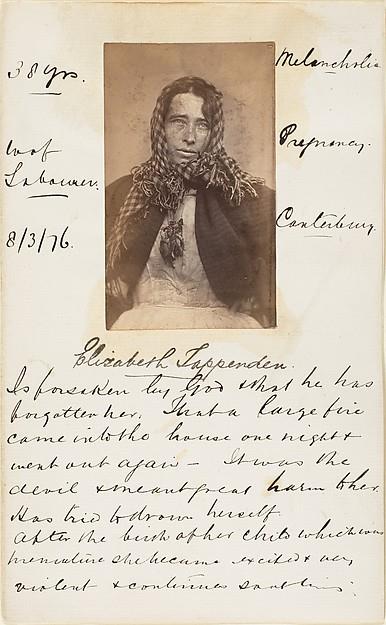 38 yrs.
Melancholia
W of
Labourer.
Pregnancy.
8/3/76.
Canterbury.
Elizabeth Tappenden.
Is forsaken by God & that he has
forgotten her. That a large fire
came into the house one night &
went out again – It was the
devil & meant great harm to her.
Has tried to drown herself
After the birth of her child which was
premature she became excited & very
violent & continues